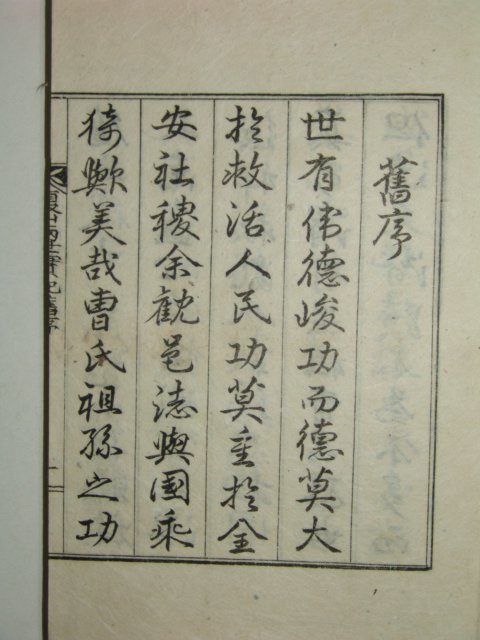 舊序
世有偉德峻功而德莫大
於救活人民功莫重於全
安社稷余觀邑誌與國乘
猗歟美哉曺氏祖孫之功